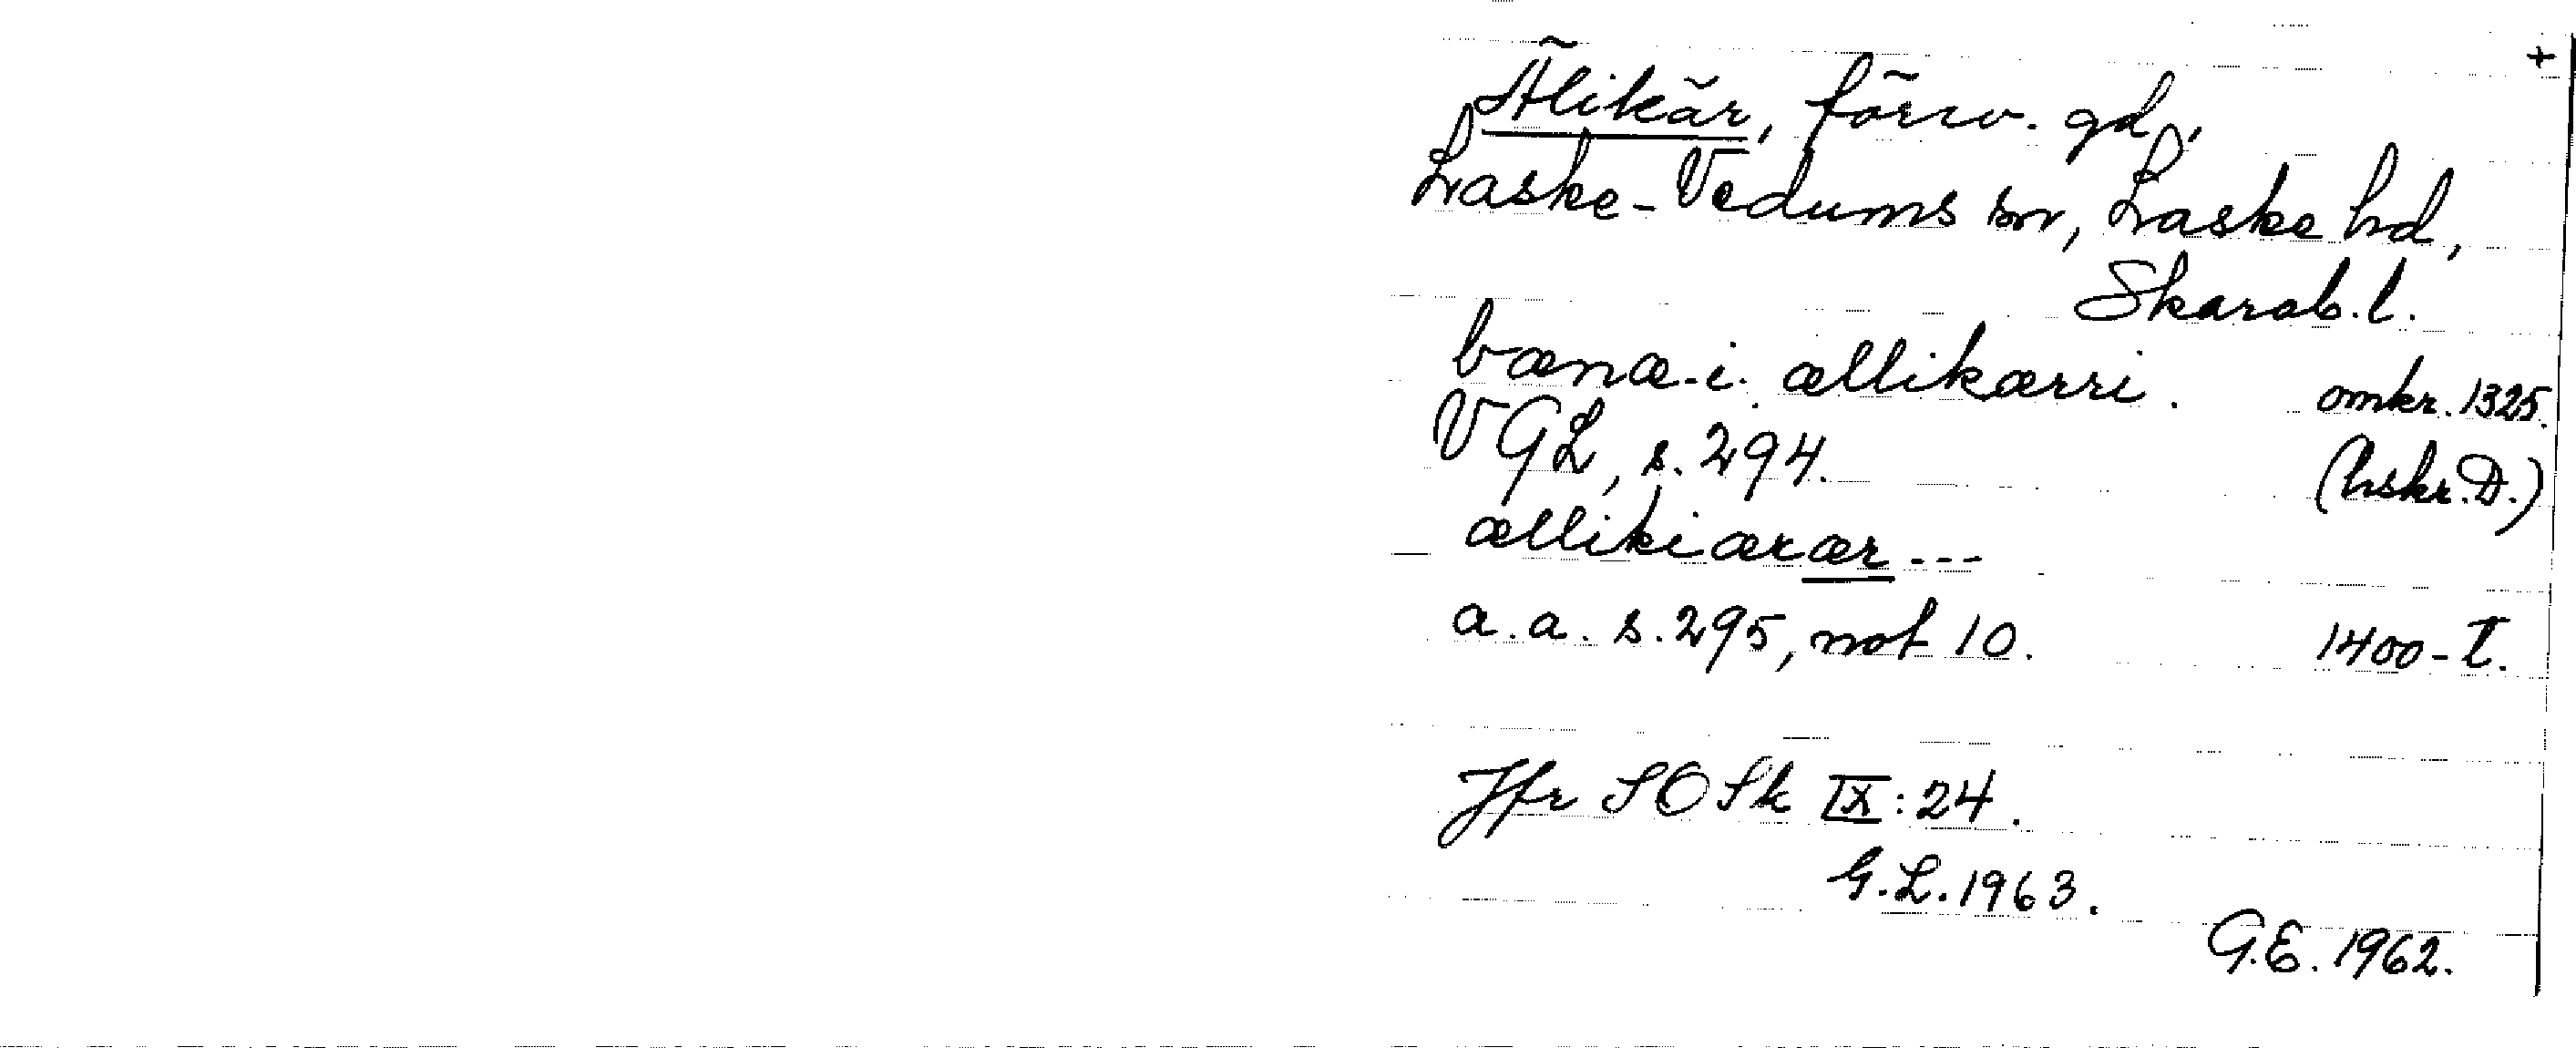 +
Älikär, försv. gd,
Laske-Vedums sn, Laske hd,
Skarab. l.
bænæ. i. ællikærri. omkr. 1325.
VGL, s. 294. (hskr. D.)
ællikiærær ---
a. a. s. 295, not 10. 1400-t.
Jfr SOSk IX: 24.
G. L. 1963.
G. E. 1962.